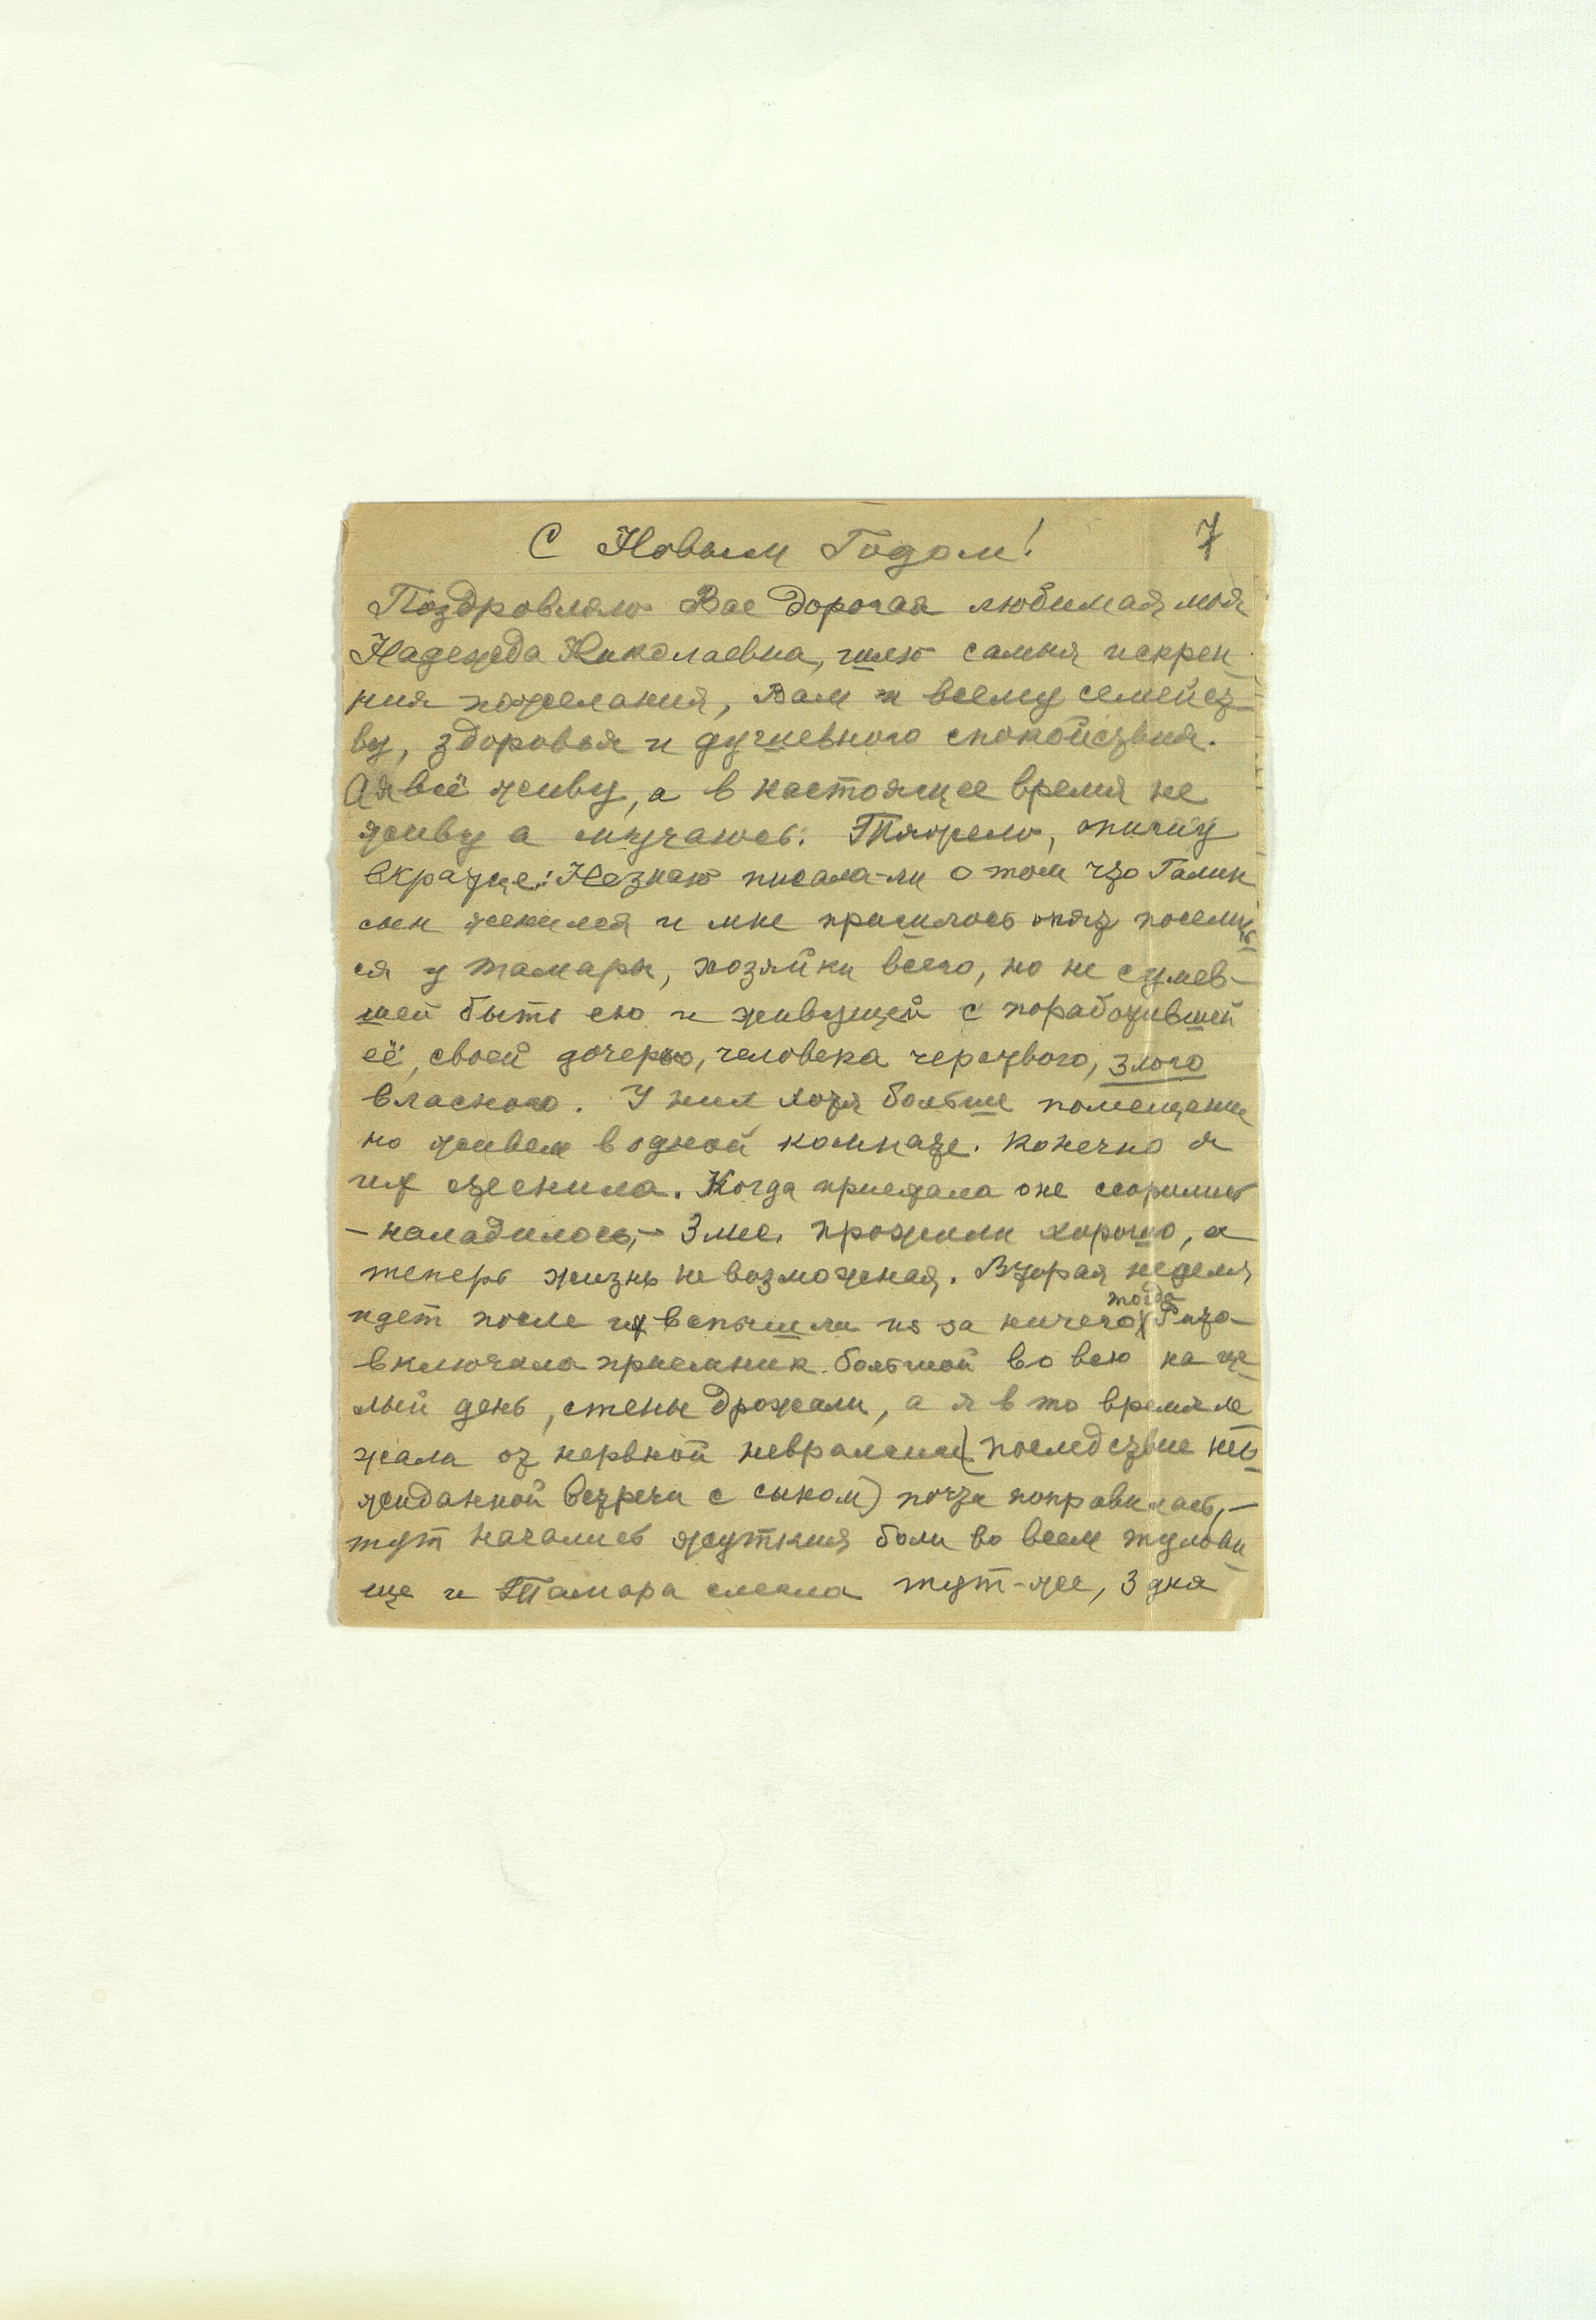 С Новым Годом! 7
Поздровляю Вас дорогая любимая моя
Надежда Николаевна, шлю самыя искрен
ния пожелания, Вам и всему семейст-
ву, здоровья и душевного спокойствия.
А я всё живу, а в настоящее время не
живу а мучаюсь. Тяжело, пишу
вкратце: Незнаю писала-ли о том что Галин
сын женился и мне пришлось опять поселить
ся у Тамары, хозяйки всего, но не сумев-
шей быть ею и живущей с поработившей
её, своей дочерью, человека черствого, злого
властного. У них хотя больше помещение
но живем в одной комнате. Конечно я
их стеснила. Когда приехала оне ссорились
– наладилось, – 3 мес. прожили хорошо, а
теперь жизнь невозможная. Вторая неделя
идет после их вспышки из за ничего, тогда Рита
включила приемник большой во всю на це
лый день, стены дрожали, а я в то время ле
жала от нервной невралгии (последствие нео
жиданной встречи с сыном) почти поправилась, –
тут начались жуткия боли во всем тулови
ще и Тамара слегла тут-же, 3 дня